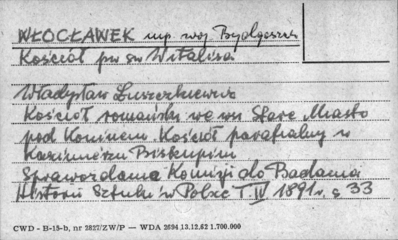 WŁOCŁAWEK mp. woj Bydgoszcz
Kościół pw św Witalisa
Władysław Łuszczkiewicz
Kościół romański we wsi Stare Miasto
pod Koninem. Kościół parafialny w
Kazimierzu Biskupim
Sprawozdania Komisji do Badania
Historii Sztuki w Polsce T. IV 1891 r. s 33
CWD - B-15-b, nr 2827/ZW/P — WDA 2694 13.12.62 1.700.000